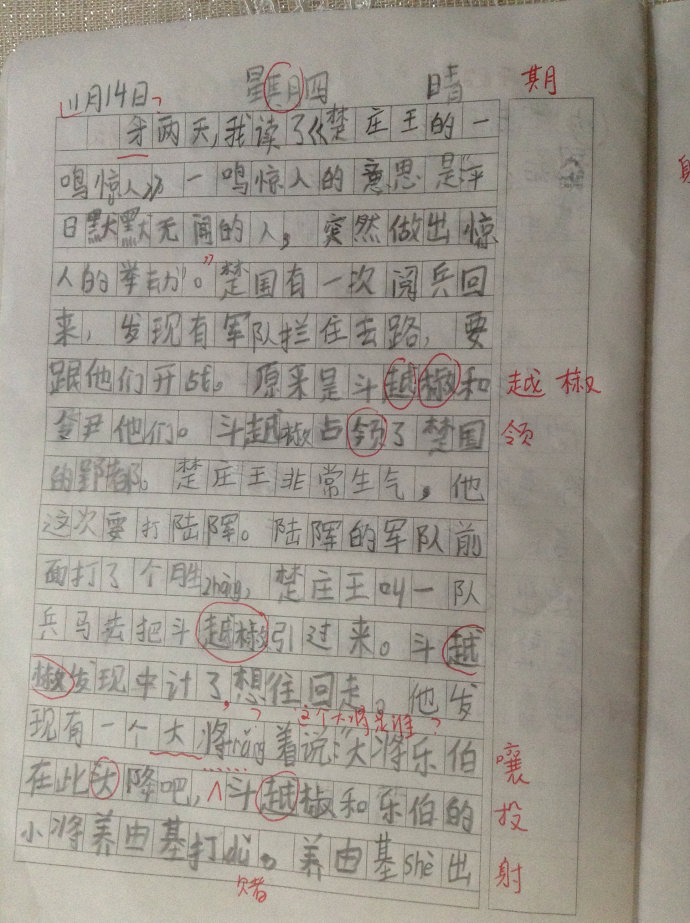 11月14日 星期四 晴 期
两天,我读了《楚庄王的一
鸣惊人》。一鸣惊人的意思是"平
日默默无闻的人,突然做出惊
人的举动"。楚国有一次阅兵回
来,发现有军队拦住去路,要
跟他们开战。原来是斗越椒和 越椒
令尹他们。斗越椒占领了楚国 领
的野都。楚庄王非常生气,他
这次要打陆浑。陆浑的军队前
面打了个胜zhàng,楚庄王叫一队
兵马去把斗越椒引过来。斗越
椒发现中计了想往回走。他发
这个大将是谁?
现有一个大将rǎng着说:"大将乐伯 嚷
在此投降吧,斗越椒和乐伯的 投
小将养由基打dǔ。养由基shè出 射
赌